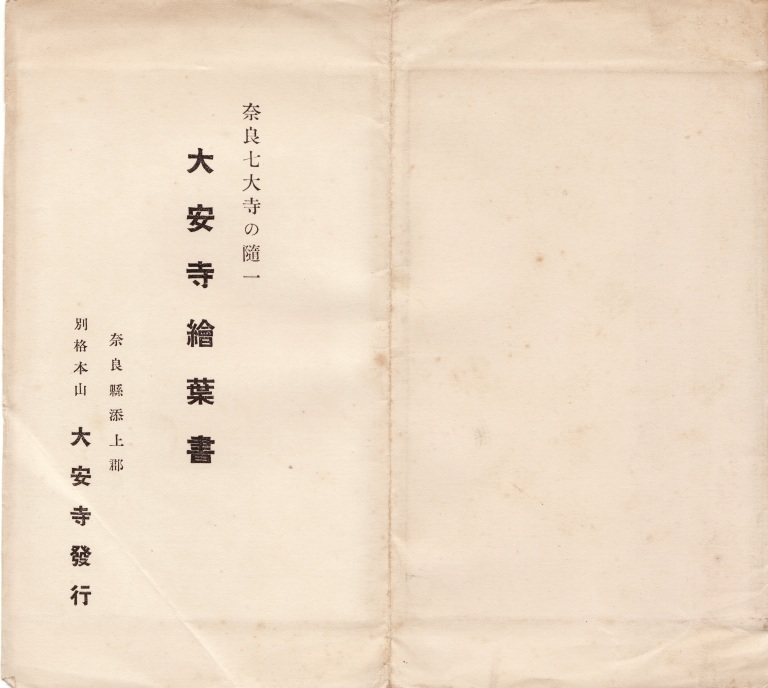 奈良七大寺の隨一
大安寺繪葉書
奈良縣添上郡
別格本山 大安寺發行